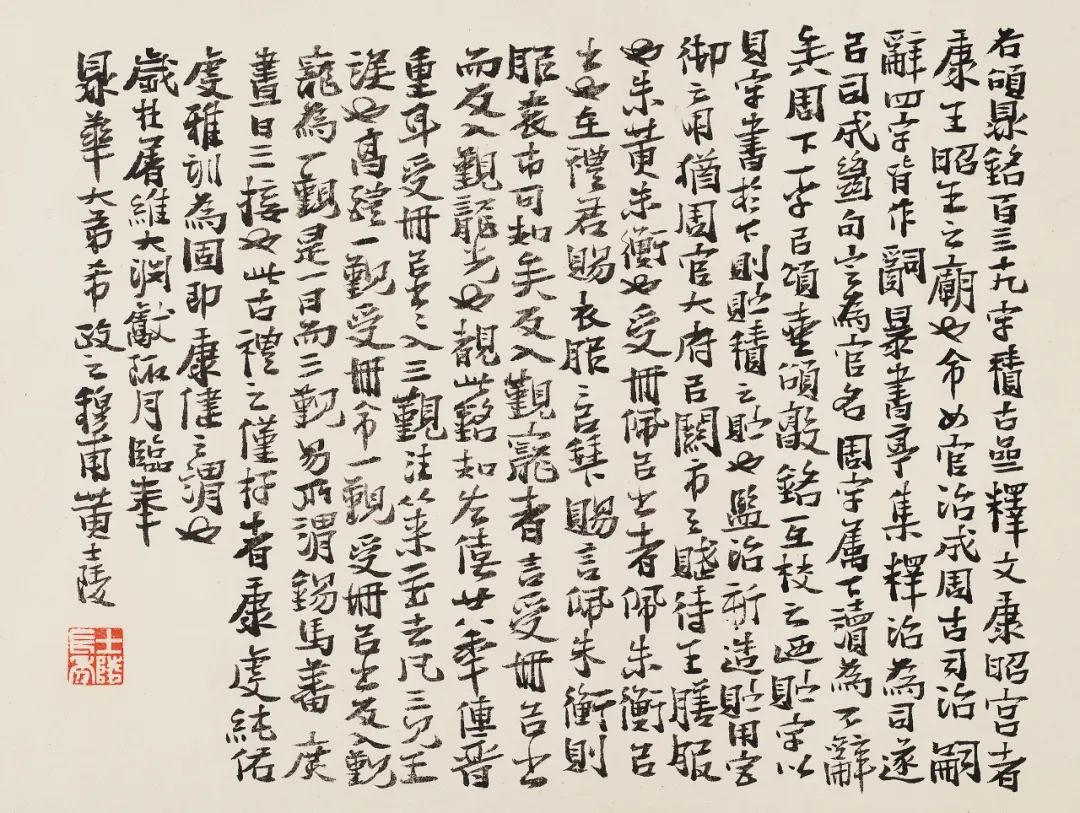 右頌鼎銘百三十九字積古齋釋文康昭宮者
康王昭王之廟也命女官治成周古司治嗣
辭四字皆作𤔲暴書亭集釋治為司遂
㠯司成絕句言為官名周字屬下讀為不辭
矣周下一字㠯頌壺頌敦銘互校之迺貯字以
貝字書於下則貯積之貯也監治新造貯用宮
御之用猶周官大府㠯關市之賦待王膳服
也朱黄朱衡也受冊佩㠯出者佩朱衡㠯
出也在禮君賜衣服之言賜言佩朱衡則
服衮市可知矣反入覲寵者言受冊㠯出
而反入覲寵光也覲此銘知左僖廿八年傳晉
重耳受冊㠯出出入三覲注從來至去凡三見王
誤也高禮一覲受冊命一覲受冊㠯出反入覲
寵為一覲是一日而三覲易所謂錫馬蕃庶
晝日三接也此古禮之僅存者康虔純佑
虔雅訓為固即康健之謂也
歲在屠維大淵獻陬月臨奉
鼎華大弟希政之穆甫黄士陵
士陵長年